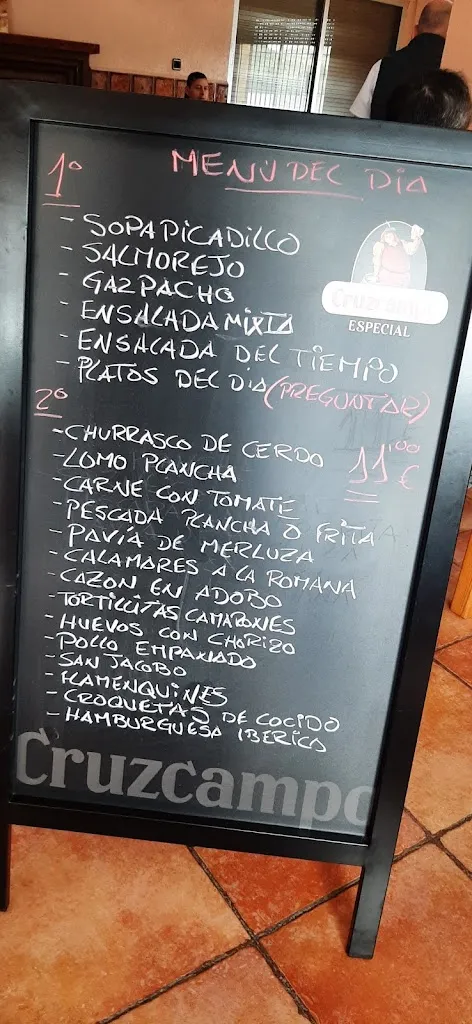 1º MENU DEL DIA
- SOPA PICADILLO
- SALMOREJO
- GAZPACHO
- ENSALADA MIXTA
- ENSALADA DEL TIEMPO
- PLATOS DEL DIA (PREGUNTAR)
Cruzcampo
ESPECIAL
2º
- CHURRASCO DE CERDO
11'00 €
- LOMO PLANCHA
- CARNE CON TOMATE
- PESCADA PLANCHA O FRITA
- PAVIA DE MERLUZA
- CALAMARES A LA ROMANA
- CAZON EN ADOBO
- TORTILLITAS CAMARONES
- HUEVOS CON CHORIZO
- POLLO EMPANADO
- SAN JACOBO
- FLAMENQUINES
- CROQUETAS DE COCIDO
- HAMBURGUESA IBERICO
Cruzcampo